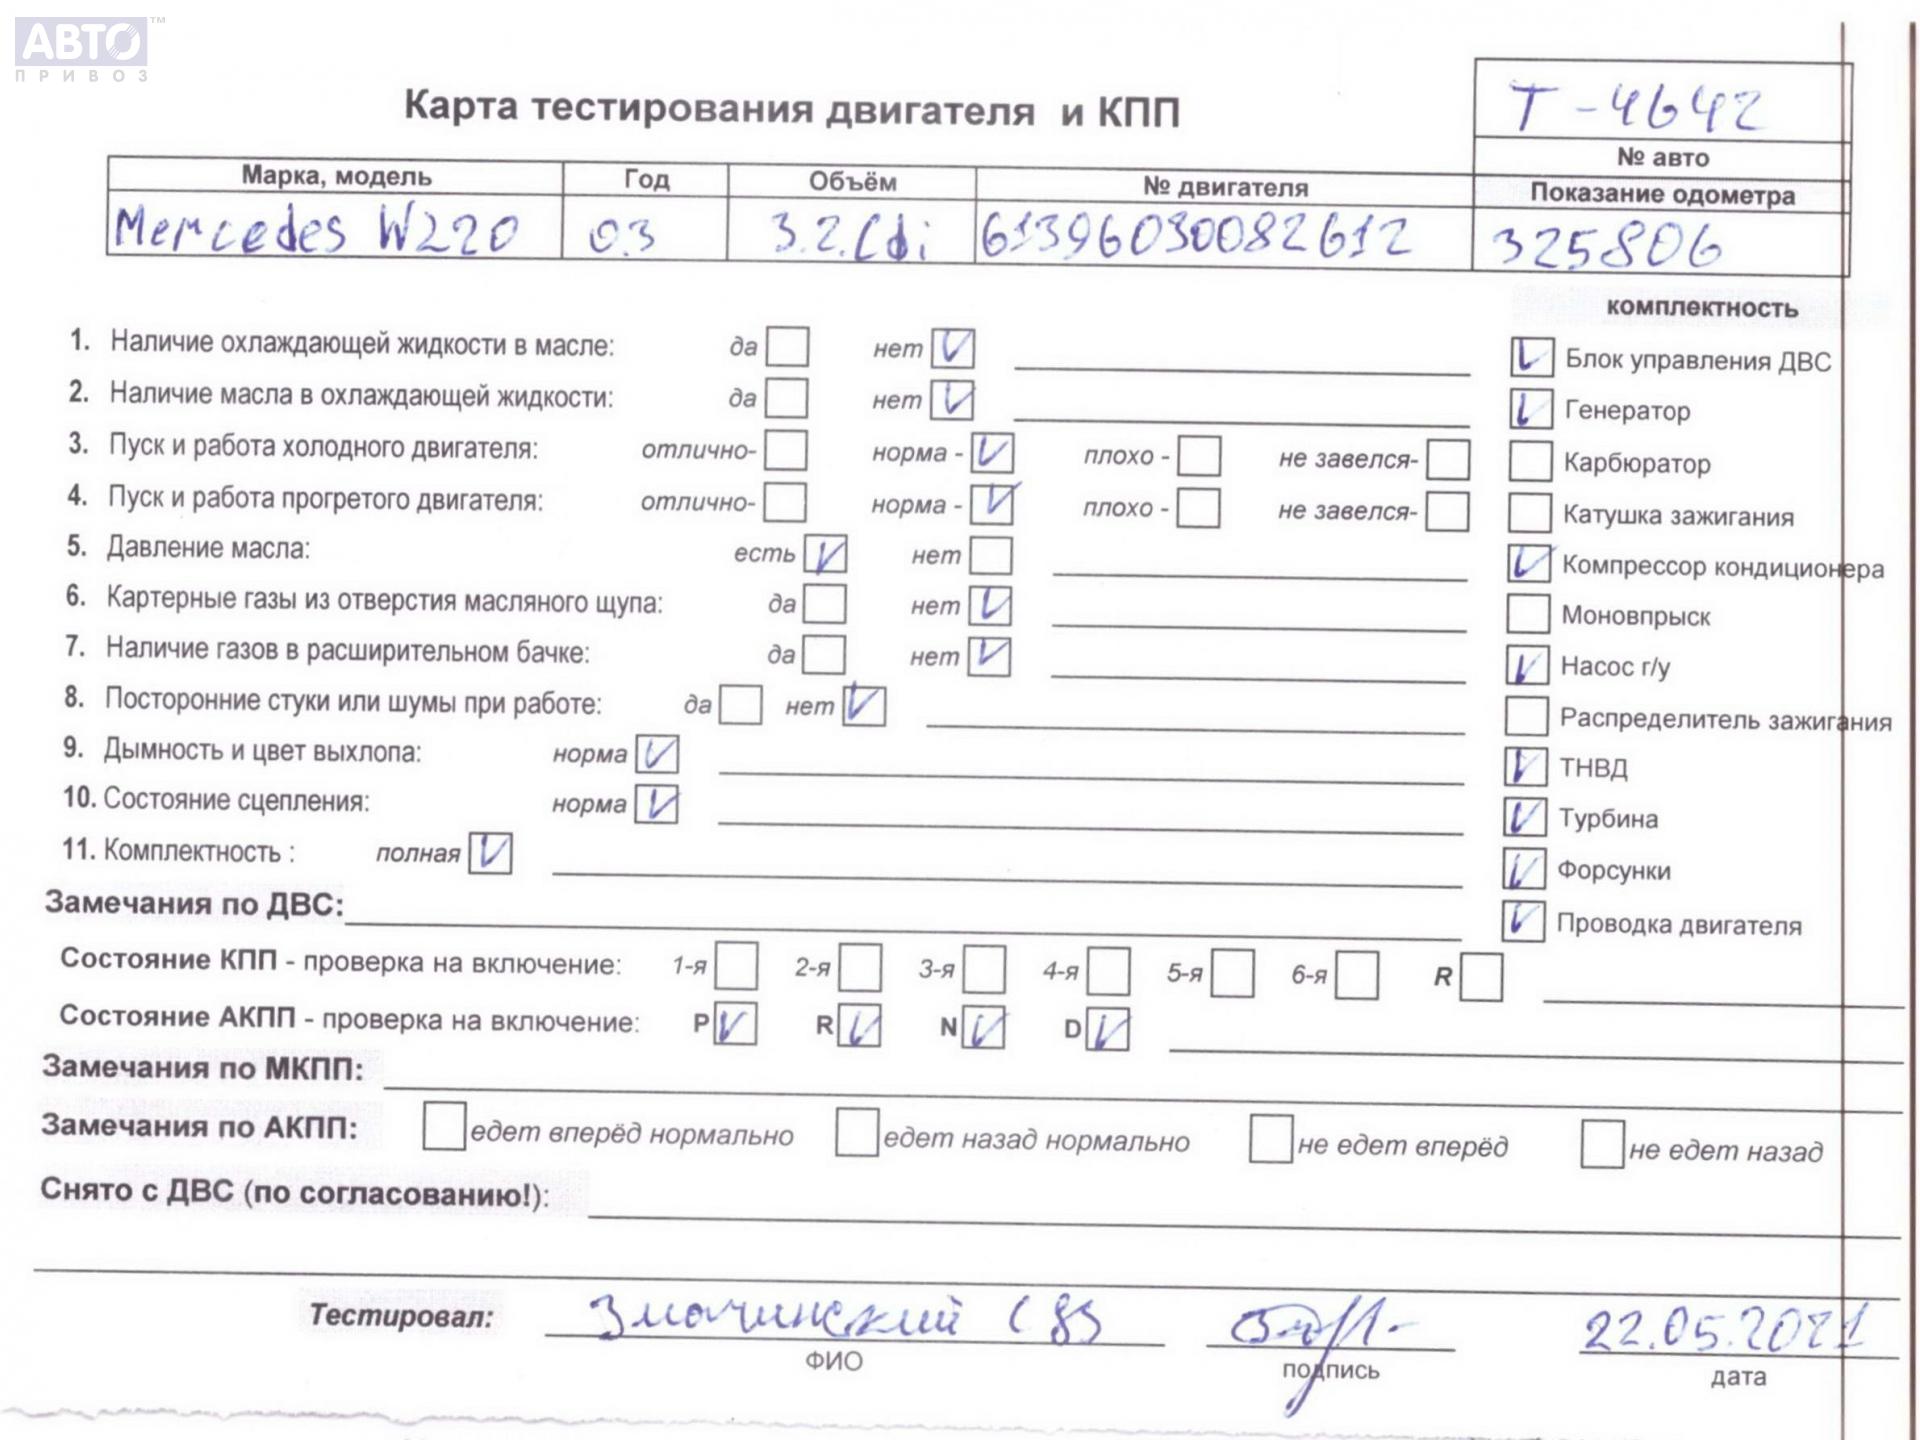 АВТО™
ПРИВОЗ
Карта тестирования двигателя и КПП
Т-4642
№ авто
Марка, модель Год Объём № двигателя Показание одометра
Mercedes W220 03 3.2.Cdi 61396030082612 325806
комплектность
1. Наличие охлаждающей жидкости в масле: да нет V V Блок управления ДВС
2. Наличие масла в охлаждающей жидкости: да нет V V Генератор
3. Пуск и работа холодного двигателя: отлично- норма - V плохо - не завелся- Карбюратор
4. Пуск и работа прогретого двигателя: отлично- норма - V плохо - не завелся- Катушка зажигания
5. Давление масла: есть V нет V Компрессор кондиционера
6. Картерные газы из отверстия масляного щупа: да нет V Моновпрыск
7. Наличие газов в расширительном бачке: да нет V V Насос г/у
8. Посторонние стуки или шумы при работе: да нет V Распределитель зажигания
9. Дымность и цвет выхлопа: норма V V ТНВД
10. Состояние сцепления: норма V V Турбина
11. Комплектность : полная V V Форсунки
Замечания по ДВС: V Проводка двигателя
Состояние КПП - проверка на включение: 1-я 2-я 3-я 4-я 5-я 6-я R
Состояние АКПП - проверка на включение: P V R V N V D V
Замечания по МКПП:
Замечания по АКПП: едет вперёд нормально едет назад нормально не едет вперёд не едет назад
Снято с ДВС (по согласованию!):
Тестировал: 22.05.2021
ФИО подпись дата